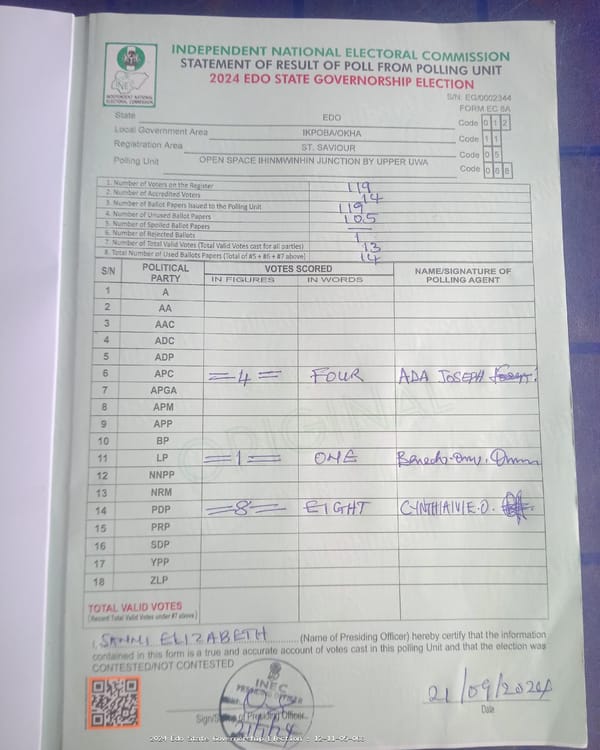 INDEPENDENT NATIONAL ELECTORAL COMMISSION
STATEMENT OF RESULT OF POLL FROM POLLING UNIT
2024 EDO STATE GOVERNORSHIP ELECTION
INEC
INDEPENDENT NATIONAL ELECTORAL COMMISSION
S/N: EG/0002344
FORM EC 8A
State EDO Code 0 1 2
Local Government Area IKPOBA/OKHA Code 1 1
Registration Area ST. SAVIOUR Code 0 5
Polling Unit OPEN SPACE IHINMWINHIN JUNCTION BY UPPER UWA Code 0 0 8
1. Number of Voters on the Register 119
2. Number of Accredited Voters 14
3. Number of Ballot Papers Issued to the Polling Unit 119
4. Number of Unused Ballot Papers 105
5. Number of Spoiled Ballot Papers —
6. Number of Rejected Ballots 1
7. Number of Total Valid Votes (Total Valid Votes cast for all parties) 13
8. Total Number of Used Ballots Papers (Total of #5 + #6 + #7 above) 14
S/N POLITICAL PARTY VOTES SCORED NAME/SIGNATURE OF POLLING AGENT
IN FIGURES IN WORDS
1 A
2 AA
3 AAC
4 ADC
5 ADP
6 APC =4= FOUR ADA JOSEPH
7 APGA
8 APM
9 APP
10 BP
11 LP =1= ONE
12 NNPP
13 NRM
14 PDP =8= EIGHT
15 PRP
16 SDP
17 YPP
18 ZLP
ORIGINAL
TOTAL VALID VOTES
(Record Total Valid Votes under #7 above)
I, SANNI ELIZABETH (Name of Presiding Officer) hereby certify that the information
contained in this form is a true and accurate account of votes cast in this polling Unit and that the election was
CONTESTED/NOT CONTESTED
INEC
PRESIDING OFFICER
21/09/2024
Sign/Stamp of Presiding Officer Date
2024 Edo State Governorship Election